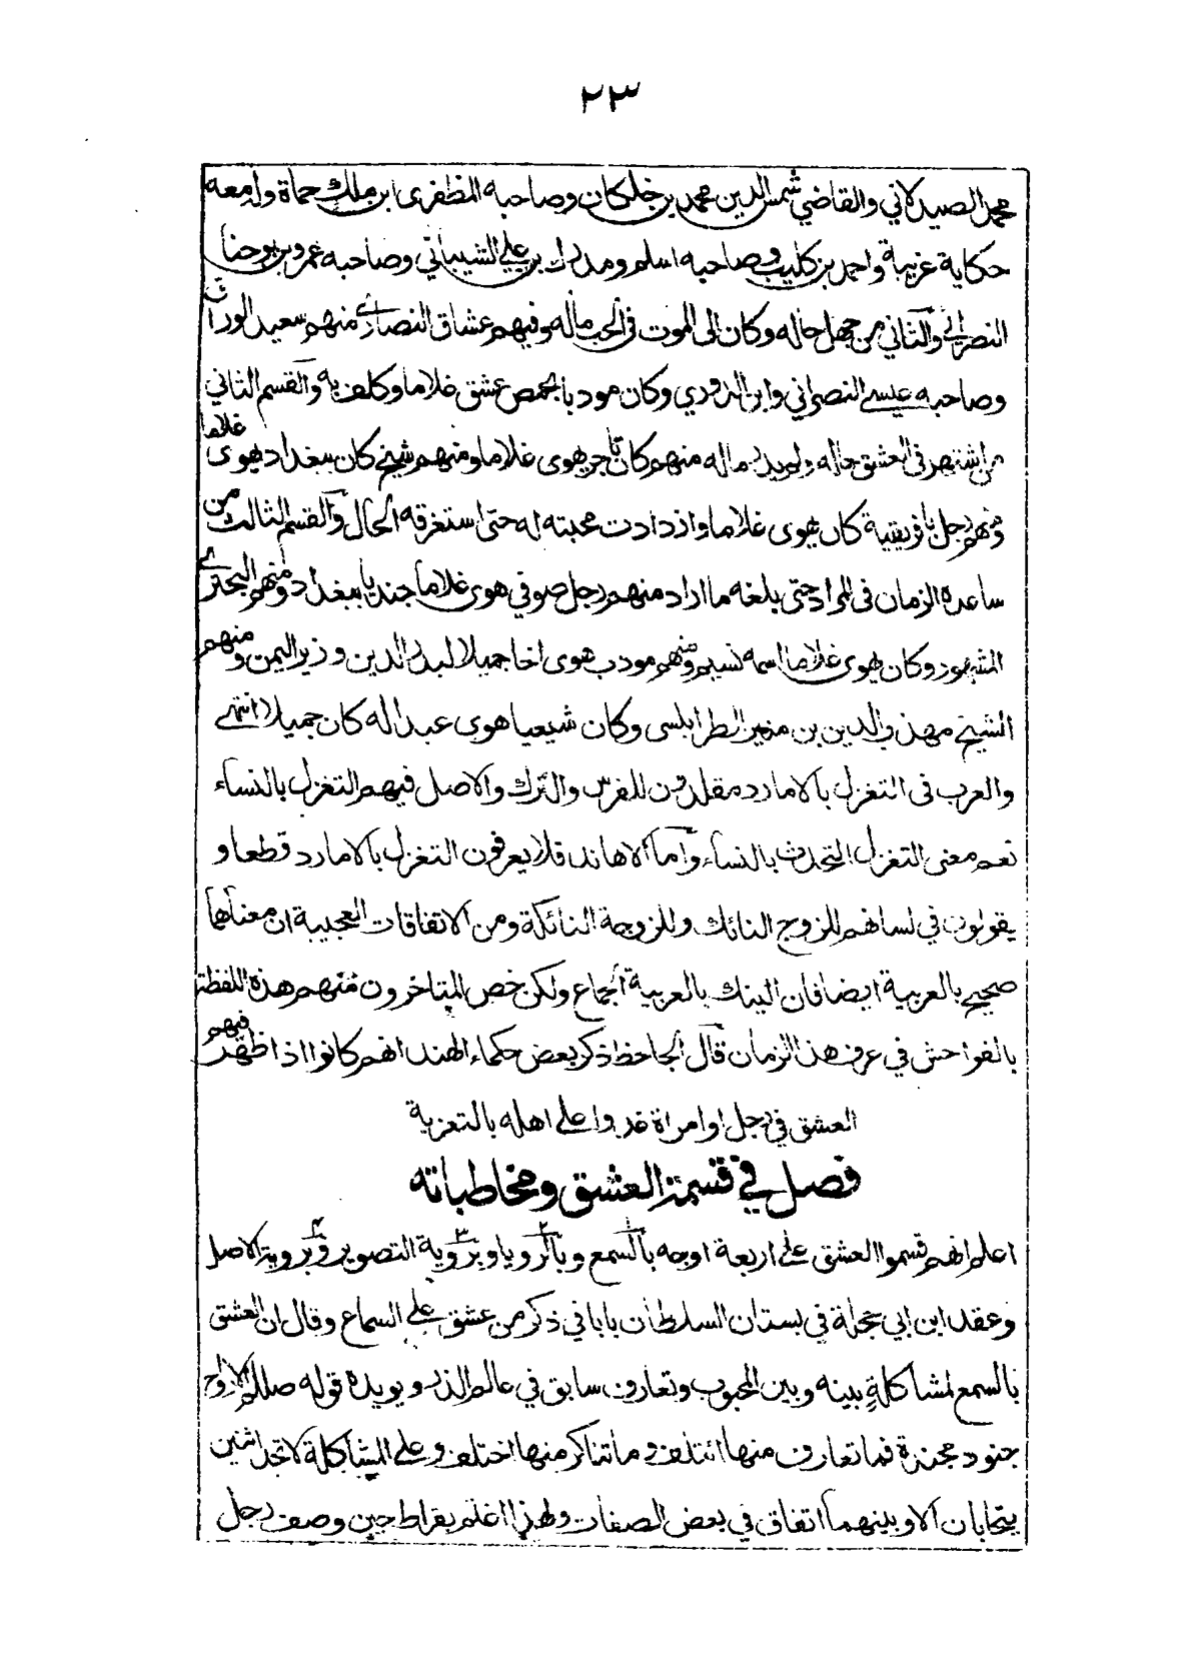 ٢٣
محمد الصيدلاني والقاضي شمس الدين محمد بن خلكان وصاحبه المظفرى ابن ملك حماة وله معه
حكاية غريبة واحمد بن كليب وصاحبه اسلم ومدرك بن علي الشيباني وصاحبه عمرو بن يوحنا
النصراني والثاني من جهل حاله وكان الى الموت في الحب مآله وفيهم عشاق النصارى منهم سعيد الوراق
وصاحبه عيسى النصراني وابن الدروردي وكان مودبا بحمص عشق غلاما وكلف به والقسم الثاني
من اشتهر في العشق حاله ولم يدر مآله منهم كان تاجر يهوى غلاما ومنهم شيخ كان ببغداد يهوى غلاما
ومنهم رجل بافريقية كان يهوى غلاما وازدادت محبته له حتى استغرقه الحال والقسم الثالث من
ساعده الزمان في المراد حتى بلغه ما اراد منهم رجل صوفي هوى غلاما جنديا ببغداد ومنهم البحترى
المشهور وكان يهوى غلاما اسمه نسيم ومنهم مودب هوى اخا جميلا لبدر الدين وزير اليمن ومنهم
الشيخ مهذب الدين بن منير الطرابلسى وكان شيعيا هوى عبدا له كان جميلا انتهى
والعرب في التغزل بالامارد مقلدون للفرس والترك والاصل فيهم التغزل بالنساء
نعم معنى التغزل التحدث بالنساء واما الاهاند فلا يعرفون التغزل بالامارد قطعا و
يقولون في لسانهم للزوج النائك وللزوجة النائكة ومن الاتفاقات العجيبة ان معناها
صحيح بالعربية ايضا فان النيك بالعربية الجماع ولكن خص المتاخرون منهم هذه اللفظة
بالفواحش في عرف هذا الزمان قال الجاحظ ذكر بعض حكماء الهند انهم كانوا اذا ظهر فيهم
العشق في رجل او امراة غدوا على اهله بالتعزية
فصل في قسمة العشق ومخاطباته
اعلم انهم قسموا العشق على اربعة اوجه بالسمع وبالرويا وبروية التصوير وبروية الاصل
وعقد ابن ابي حجلة في بستان السلطان بابا في ذكر من عشق على السماع وقال ان العشق
بالسمع لمشاكلة بينه وبين المحبوب وتعارف سابق في عالم الذر ويويده قوله صللم الارواح
جنود مجندة فما تعارف منها ائتلف وما تناكر منها اختلف وعلى المشاكلة لا تجد اثنين
يتحابان الا وبينهما اتفاق في بعض الصفات ولهذا اغتم بقراط حين وصف رجل